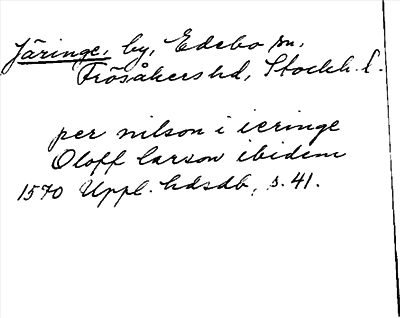 Järinge, by, Edebo sn,
Frösåkers hd, Stockh. l.
per nilson i ieringe
Oloff larson ibidem
1570 Uppl. hdsdb, s. 41.